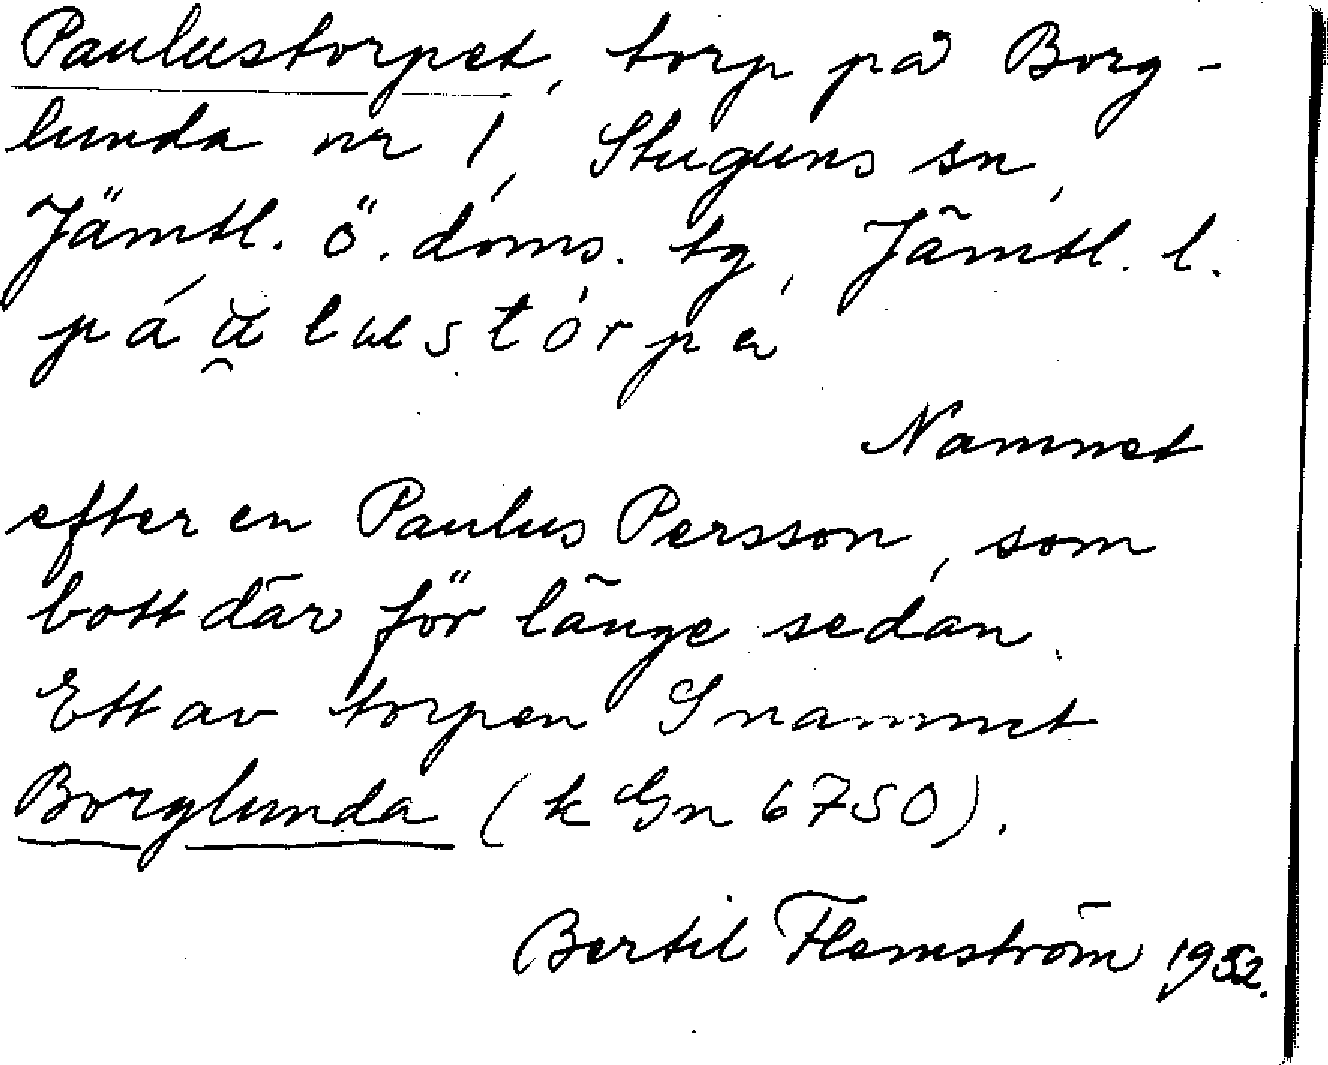 Paulustorpet, torp på Borg-
lunda nr 1, Stuguns sn,
Jämtl. ö. doms. tg, Jämtl. l.
Namnet
efter en Paulus Persson, som
bott där för länge sedan.
Ett av torpen S namnet
Borglunda (k Gn 6750).
Bertil Flemström 1952.